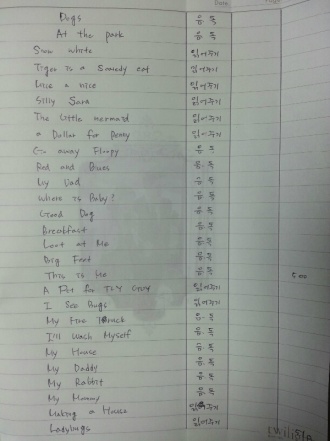 Date
Page
Dogs 음독
At the park 음독
Snow white 읽어주기
Tiger is a Scaredy cat 읽어주기
mice 읽어주기
Silly Sara 읽어주기
The Little mermaid 읽어주기
a Dollar for Penny 읽어주기
Go away Floppy 음독
Red and Blues 음독
My Dad 음독
Where is Baby? 음독
Good Dog 음독
Breakfast 음독
Look at Me 음독
Big Feet 음독
This is Me 음독 500
A Pet for 읽어주기
I See Bugs 읽어주기
My Fire Truck 음독
I'll Wash Myself 음독
My House 음독
My Daddy 음독
My Rabbit 음독
My Mommy 음독
Making a House 읽어주기
Ladybugs 읽어주기